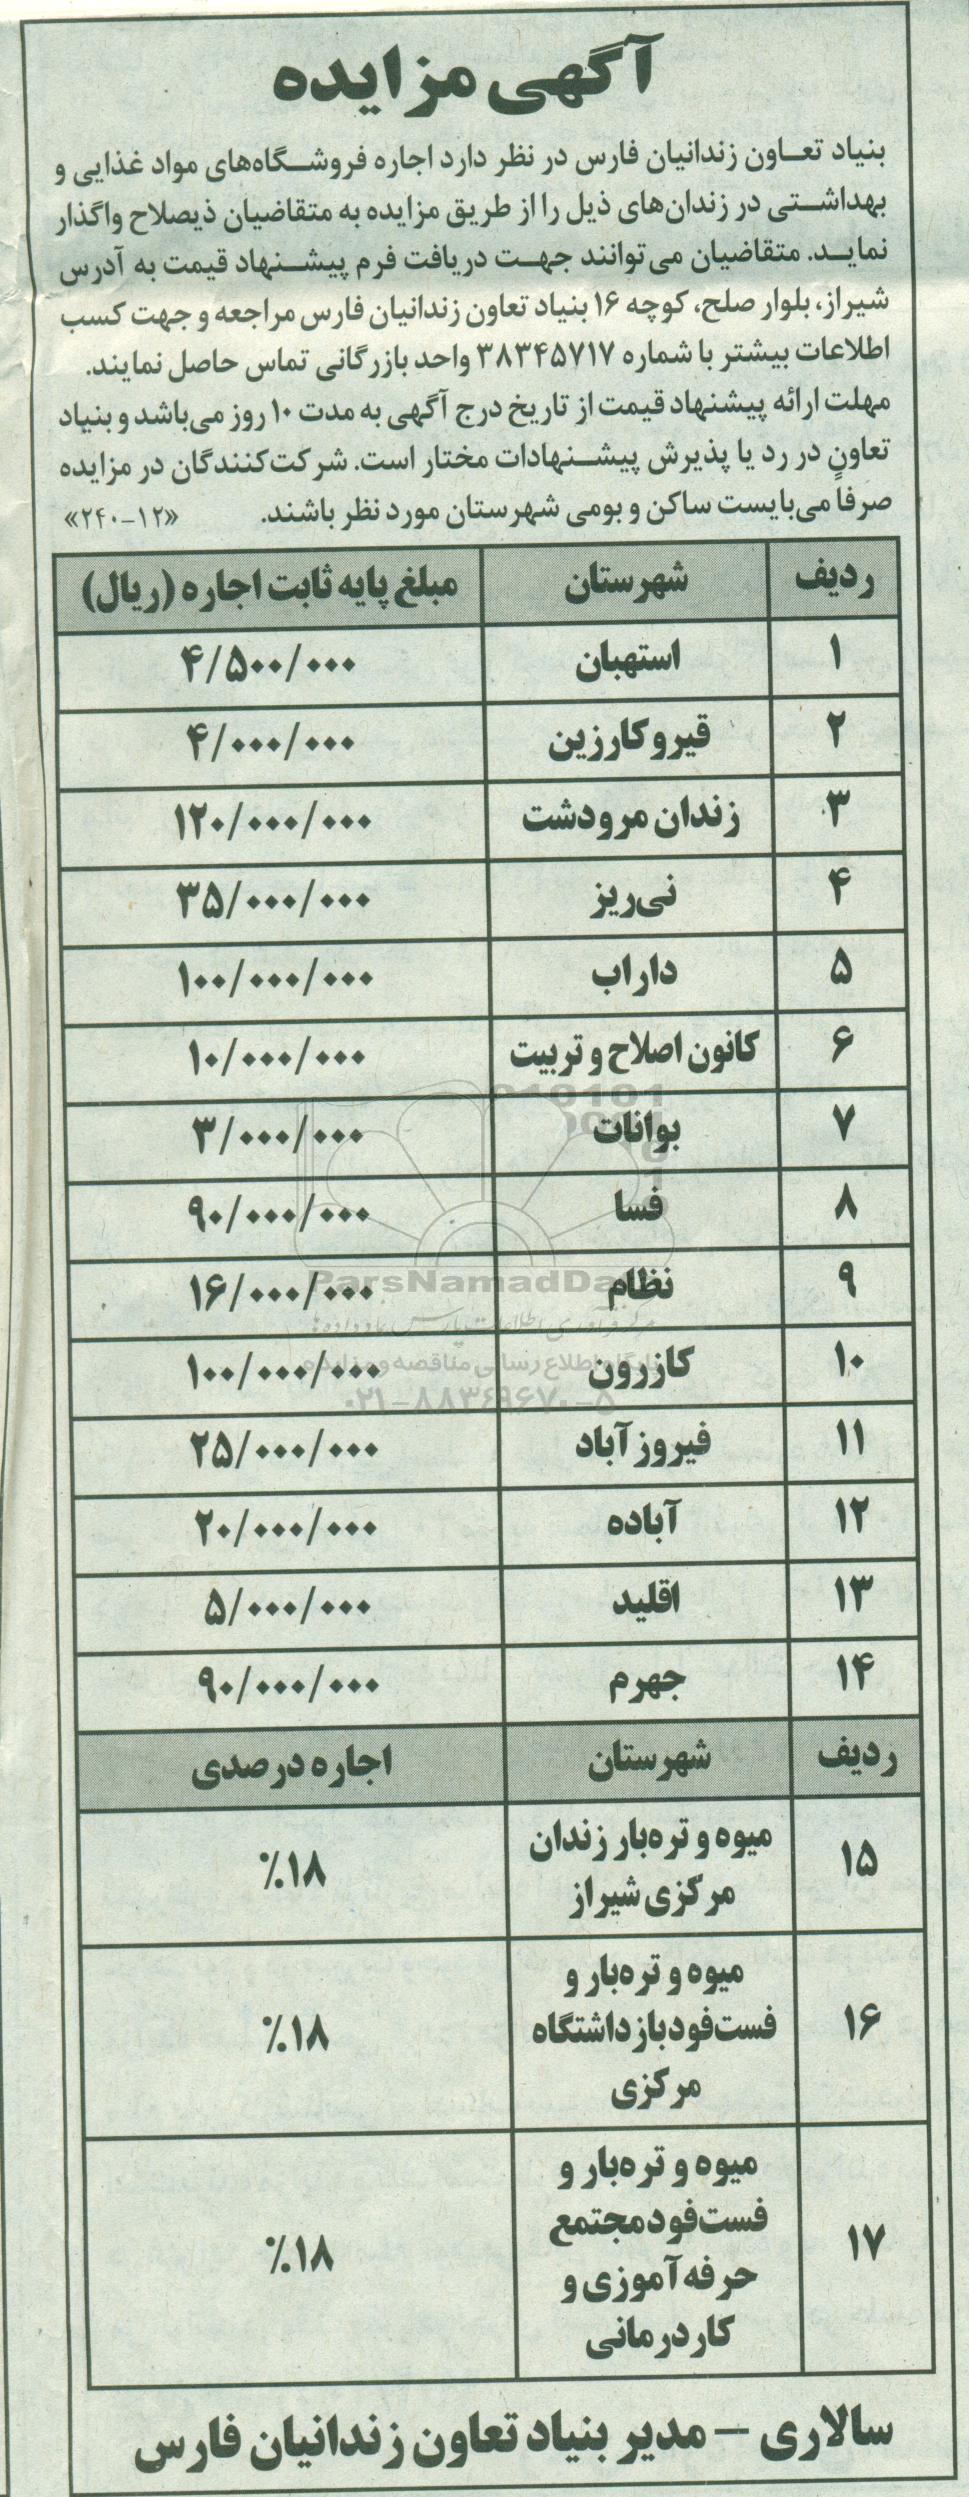 آگهی مزایده
بنیاد تعاون زندانیان فارس در نظر دارد اجاره فروشگاه‌های مواد غذایی و
بهداشتی در زندان‌های ذیل را از طریق مزایده به متقاضیان ذیصلاح واگذار
نماید. متقاضیان می‌توانند جهت دریافت فرم پیشنهاد قیمت به آدرس
شیراز، بلوار صلح، کوچه ۱۶ بنیاد تعاون زندانیان فارس مراجعه و جهت کسب
اطلاعات بیشتر با شماره ۳۸۳۴۵۷۱۷ واحد بازرگانی تماس حاصل نمایند.
مهلت ارائه پیشنهاد قیمت از تاریخ درج آگهی به مدت ۱۰ روز می‌باشد و بنیاد
تعاون در رد یا پذیرش پیشنهادات مختار است. شرکت‌کنندگان در مزایده
صرفاً می‌بایست ساکن و بومی شهرستان مورد نظر باشند. «۲۴۰-۱۲»
ردیف شهرستان مبلغ پایه ثابت اجاره (ریال)
۱ استهبان ۴/۵۰۰/۰۰۰
۲ قیروکارزین ۴/۰۰۰/۰۰۰
۳ زندان مرودشت ۱۲۰/۰۰۰/۰۰۰
۴ نی‌ریز ۳۵/۰۰۰/۰۰۰
۵ داراب ۱۰۰/۰۰۰/۰۰۰
۶ کانون اصلاح و تربیت ۱۰/۰۰۰/۰۰۰
۷ بوانات ۳/۰۰۰/۰۰۰
۸ فسا ۹۰/۰۰۰/۰۰۰
۹ نظام ۱۶/۰۰۰/۰۰۰
۱۰ کازرون ۱۰۰/۰۰۰/۰۰۰
۱۱ فیروزآباد ۲۵/۰۰۰/۰۰۰
۱۲ آباده ۲۰/۰۰۰/۰۰۰
۱۳ اقلید ۵/۰۰۰/۰۰۰
۱۴ جهرم ۹۰/۰۰۰/۰۰۰
ردیف شهرستان اجاره درصدی
۱۵ میوه و تره‌بار زندان ۱۸٪
مرکزی شیراز
میوه و تره‌بار و
۱۶ فست‌فود بازداشتگاه ۱۸٪
مرکزی
میوه و تره‌بار و
فست‌فود مجتمع
۱۷ حرفه‌آموزی و ۱۸٪
کاردرمانی
سالاری – مدیر بنیاد تعاون زندانیان فارس
ParsNamadDa
پایگاه اطلاع رسانی مناقصه و مزایده
۰۲۱-۸۸۳۴۹۶۷۰-۵